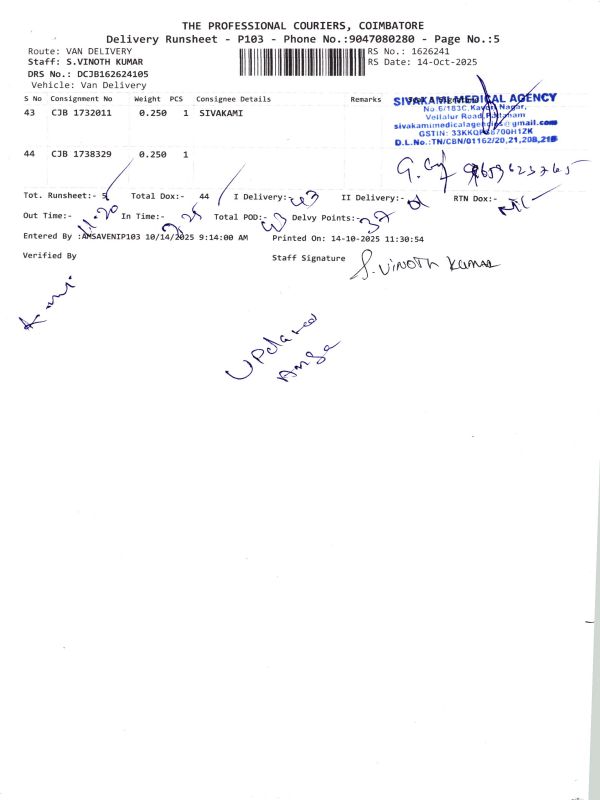 THE PROFESSIONAL COURIERS, COIMBATORE
Delivery Runsheet - P103 - Phone No.:9047080280 - Page No.:5
Route: VAN DELIVERY RS No.: 1626241
Staff: S.VINOTH KUMAR RS Date: 14-Oct-2025
DRS No.: DCJB162624105
Vehicle: Van Delivery
S No Consignment No Weight PCS Consignee Details Remarks
SIVAKAMI MEDICAL AGENCY
43 CJB 1732011 0.250 1 SIVAKAMI
No 6/183C, Nagar,
Vellalur Road,
sivakamimedicalagencies@gmail.com
GSTIN:
D.L.No.:TN/CBN/01162/20,21,20B,21B
44 CJB 1738329 0.250 1
Tot. Runsheet:- 5 Total Dox:- 44 I Delivery:- 43 II Delivery:- 01 RTN Dox:-
Out Time:- 11.20 In Time:- Total POD:- 43 Delvy Points:- 37
Entered By :AMSAVENIP103 10/14/2025 9:14:00 AM Printed On: 14-10-2025 11:30:54
Verified By Staff Signature S. Vinoth Kumar
Updated
Amsa